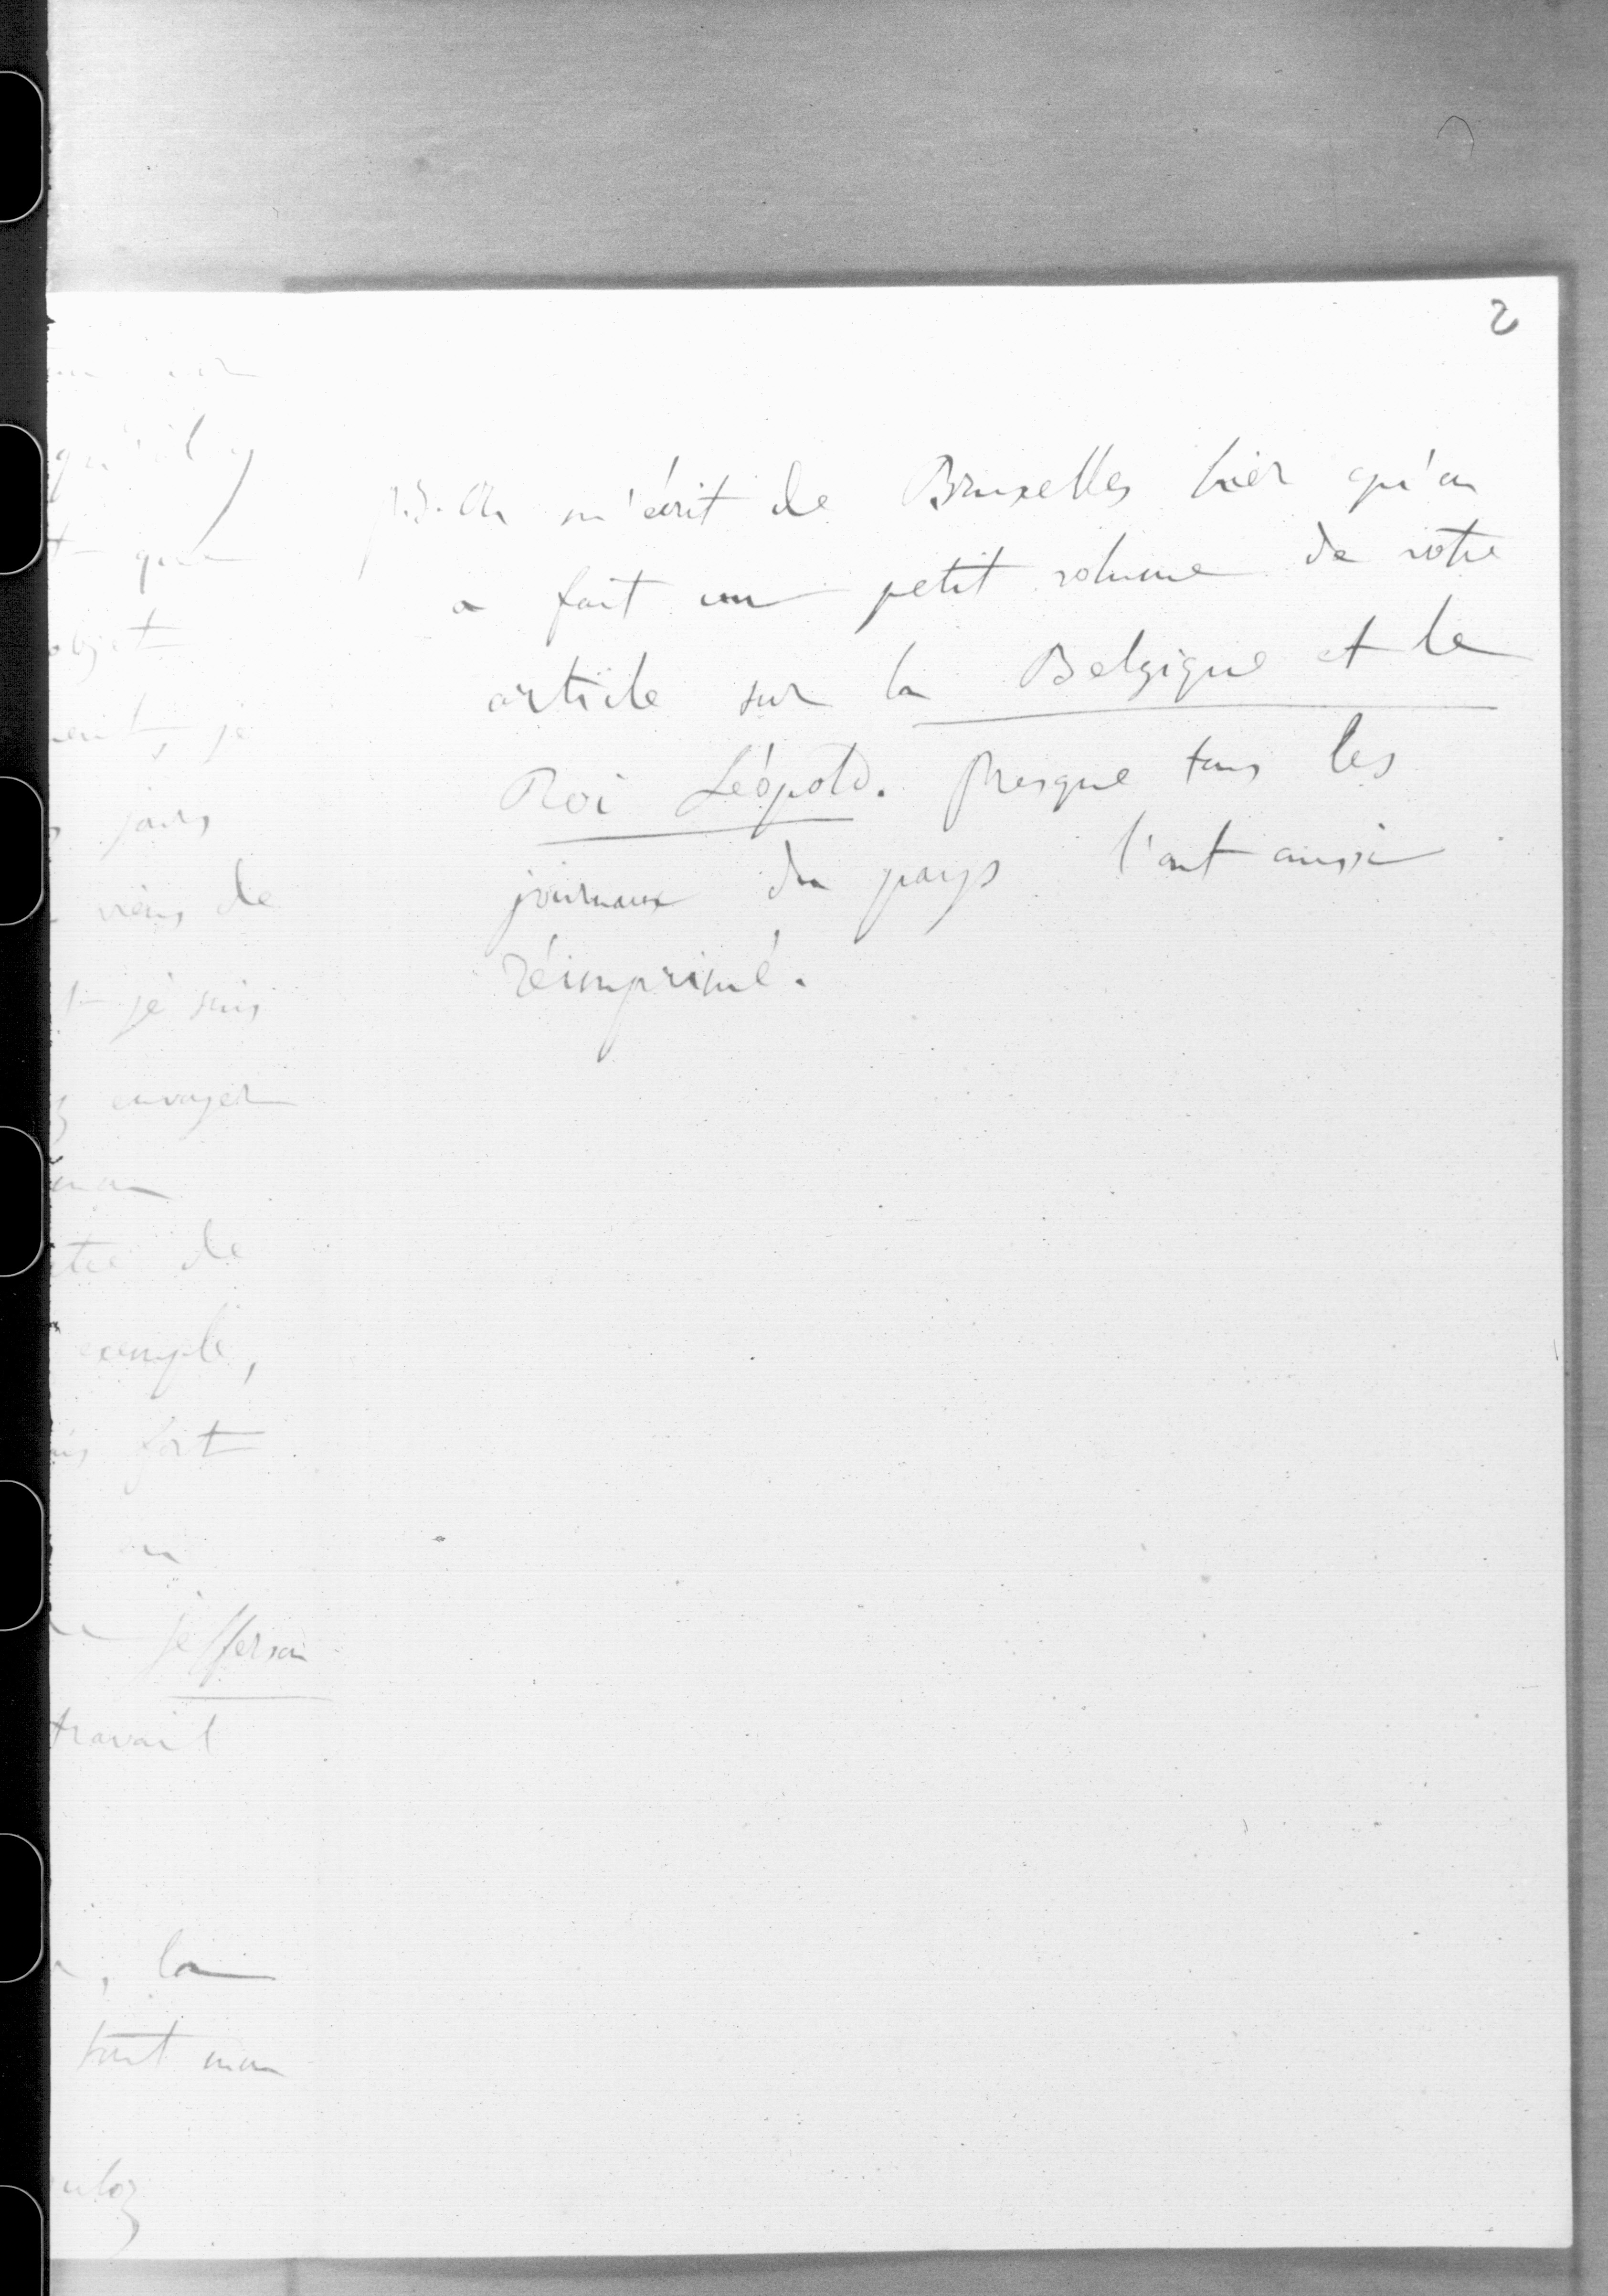 2
P.S. On m'écrit de Bruxelles hier qu'on
a fait un petit volume de votre
article sur la Belgique et le
Roi Léopold. Presque tous les
journaux du pays l'ont aussi
réimprimé.
qu'il y
que
objet
je
jours
viens de
je suis
envoyer
de
exemple,
fort
Jefferson
travail
la
tout mon